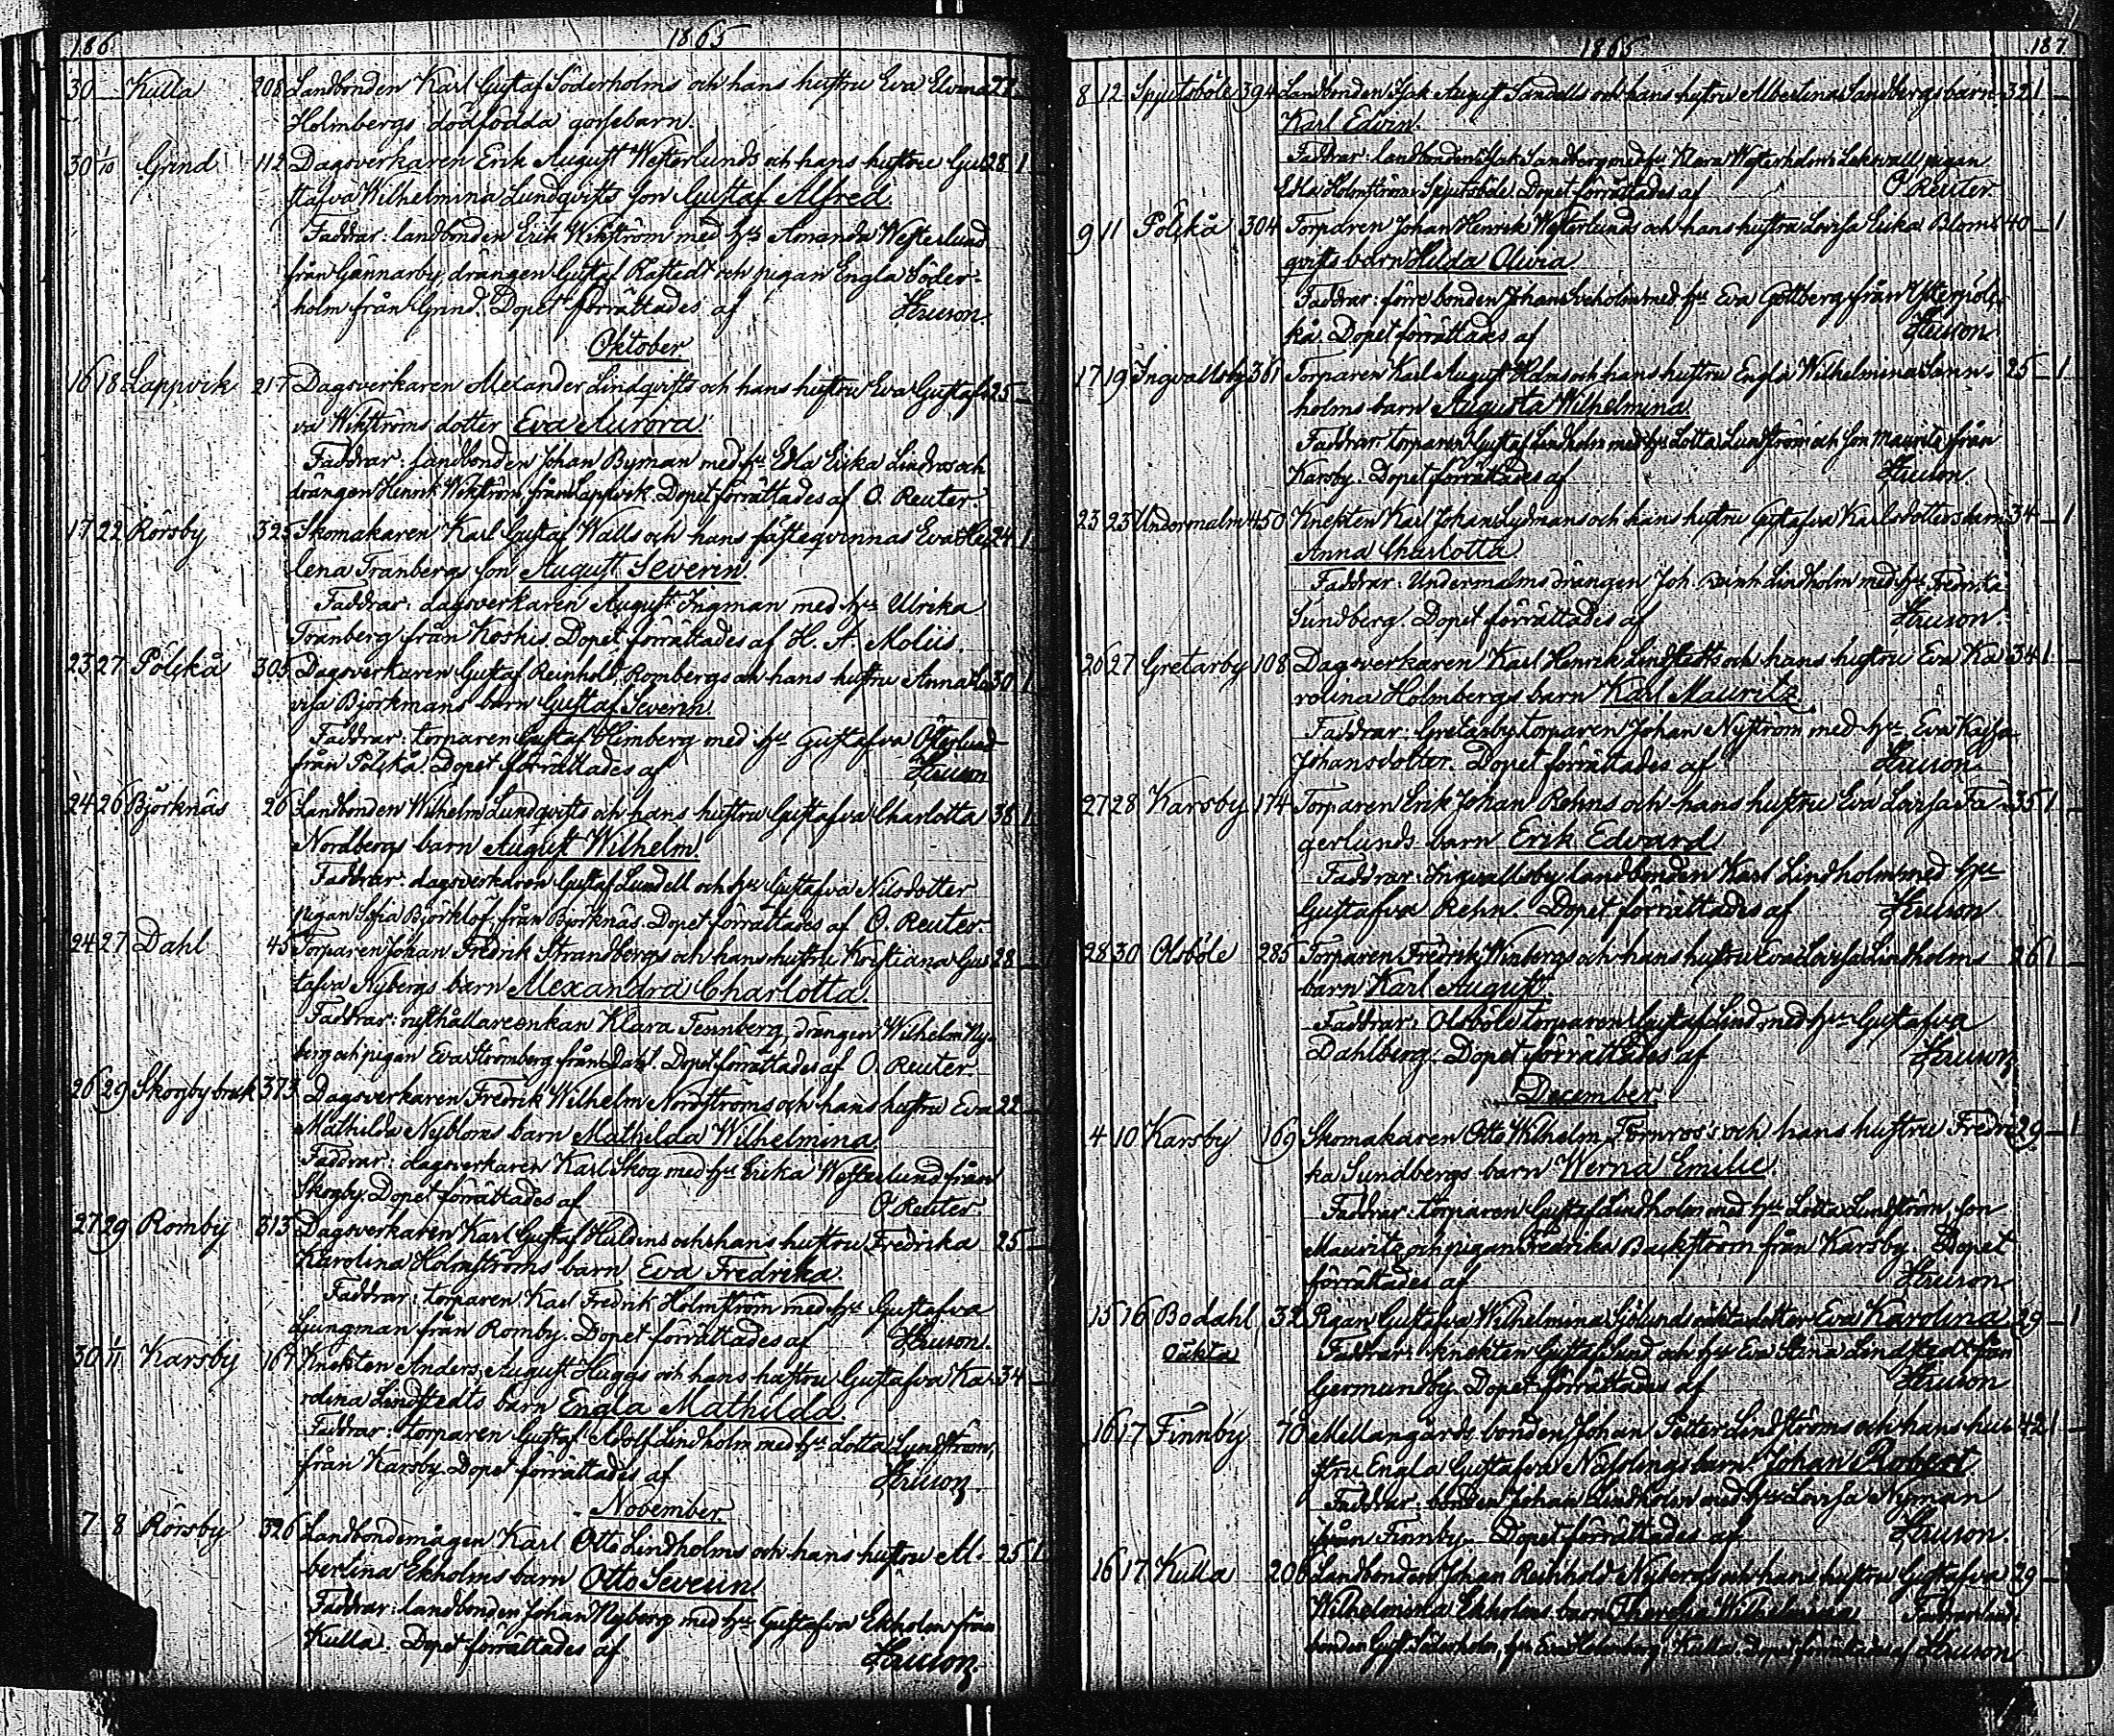 186 1865
30 Kulla 208 Landbonden Karl Gustaf Söderholms och hans hustru Eva Elvina 27
Holmbergs dödfödda gossebarn.
30 1/10 Grind 112 Dagsverkaren Erik August Westerlunds och hans hustru Gu 28 1
stafva Wilhelmina Lundqvists son Gustaf Alfred.
Faddrar: landbonden Erik Wikström med hu Amanda Westerlund
från Gännarby, drängen Gustaf och pigan Engla Söder-
holm från Grind. Dopet förrättades af
Oktober
16 18 Lappvik 217 Dagsverkaren Alexander Lindqvists och hans hustru Eva Gustaf 25
va Wikströms dotter Eva Aurora
Faddrar: landbonden Johan Byman med hu Edla Erika Lindroos och
drängen Henrik Wikström, från Lappvik. Dopet förrättades af O. Reuter.
17 22 Rörsby 325 Skomakaren Karl Gustaf Walls och hans fästeqvinnas Eva He 24 1
lena Tranbergs son August Severin.
Faddrar: dagsverkaren August Ingman med hu Ulrika
Tranberg från Koskis. Dopet förrättades af H. A. Moliis.
23 27 Pölskå 305 Dagsverkaren Gustaf Reinhold Rombergs och hans hustru Anna Lo 30 1
visa Björkmans barn Gustaf Severin.
Faddrar: torparen Gustaf Himberg med hu Gustafva Österlund
från Pölskå. Dopet förrättades af
24 26 Björknäs 26 Landbonden Wilhelm Lundqvists och hans hustru Gustafva Charlotta 38 1
Nordbergs barn August Wilhelm.
Faddrar: dagsverkaren Gustaf Lundell och hu Gustafva Nilsdotter
pigan Sofia Björklöf, från Björknäs. Dopet förrättades af O. Reuter.
24 27 Dahl 45 Torparen Johan Fredrik Strandbergs och hans hustru Kristiana Gus 28
tafva Nybergs barn Alexandra Charlotta.
Faddrar: rusthållareenkan Klara Tennberg, drängen Wilhelm Ny-
berg och pigan Eva Strömberg från Dahl. Dopet förrättades af O. Reuter
26 29 Skogby bruk 373 Dagsverkaren Fredrik Wilhelm Nordströms och hans hustru Eva 22
Mathilda Nybloms barn Mathilda Wilhelmina
Faddrar: dagsverkaren Karl Skog med hu Erika Westerlund från
Skogby. Dopet förrättades af O Reuter
27 29 Romby 313 Dagsverkaren Karl Gustaf Huldins och hans hustru Fredrika 25
Karolina Holmströms barn Eva Fredrika.
Faddrar: torparen Karl Fredrik Holmström med hu Gustafva
Ljungman från Romby. Dopet förrättades af
30 1/11 Karsby 169 Knekten Anders August Huggs och hans hustru Gustafva Ka- 34
rolina Lindstedts barn Engla Mathilda.
Faddrar: torparen Gustaf Adolf Lindholm med hu Lotta Lundström,
från Karsby. Dopet förrättades af
November.
7 8 Rörsby 326 Landbondemågen Karl Otto Lindholms och hans hustru Al- 25 1
bertina Ekholms barn Otto Severin.
Faddrar: landbonden Johan Nyberg med hu Gustafva Ekholm från
Kulla. Dopet förrättades af
1865 187
8 12 Spjutsböle 394 Landbonden Isak August Sandells och hans hustru Albertina Sandbergs barn 32 1
Karl Edvin.
Faddrar: landbonden Isak Sandberg med hu Klara Westerholm pigan
Edla Holmström Spjutsböle. Dopet förrättades af O Reuter
9 11 Pölskå 304 Torparen Johan Henrik Westerlunds och hans hustru Lovisa Erika Blom- 40 1
qvists barn Hilda Olivia
Faddrar: förre bonden Johan med hu Eva Gottberg från Ytterpöls-
kå. Dopet förrättades af
17 19 Ingvallsby 361 Torparen Karl August Holms och hans hustru Engla Wilhelmina 25 1
holms barn Augusta Wilhelmina.
Faddrar torparen Gustaf Lindholm med hu Lotta Lundström och son Mauritz från
Karsby. Dopet förrättades af
23 23 Undermalm 450 Knekten Karl Johan Lydmans och hans hustru Gustafva Karlsdotters barn 34 1
Anna Charlotta
Faddrar: Undermalms drängen Joh. Lindholm med hu Fredrika
Sundberg. Dopet förrättades af
26 27 Gretarby 108 Dagsverkaren Karl Henrik Lindstedts och hans hustru Eva Ka 34 1
rolina Holmbergs barn Karl Mauritz.
Faddrar: Gretarby torparen Johan Nyström med hu Eva Kajsa
Johansdotter. Dopet förrättades af
27 28 Karsby 174 Torparen Erik Johan Rehns och hans hustru Eva Lovisa Fa- 35 1
gerlunds barn Erik Edvard
Faddrar: Ingvallsby landbonden Karl Lindholm med hu
Gustafva Rehn. Dopet förrättades af
28 30 Olsböle 285 Torparen Fredrik Winbergs och hans hustru Eva Lovisa Lindholms 26 1
barn Karl August.
Faddrar: Olsböle torparen Gustaf Lind med hu Gustafva
Dahlberg. Dopet förrättades af
December
4 10 Karsby 169 Skomakaren Otto Wilhelm Törnroos's och hans hustru Fredri 29 1
ka Sundbergs barn Werna Emilie
Faddrar: torparen Gustaf Lindholm med hu Lotta Lundström, son
Mauritz och pigan Fredrika Backström från Karsby. Dopet
förrättades af
15 16 Bodahl 32 Pigan Gustafva Wilhelmina Sjölunds oäkta dotter Eva Karolina 29 1
Oäkta Faddrar: knekten Gustaf Lund och hu Eva Stina Lindstedt från
Germundby. Dopet förrättades af
16 17 Finnby 70 Mellangårds bonden Johan Petter Lindströms och hans hu- 42 1
stru Engla Gustafva barn Johan Robert
Faddrar: bonden Johan Lindholm med hu Lovisa Nyman
från Finnby. Dopet förrättades af
16 17 Kulla 206 Landbonden Johan Reinhold Nybergs och hans hustru Gustafva 29
Wilhelmina Ekholms barn Wilhelmina Faddrar: land-
bonden Gust. Söderholm, hu Eva Holmberg, Kulla. Dopet förrättades af